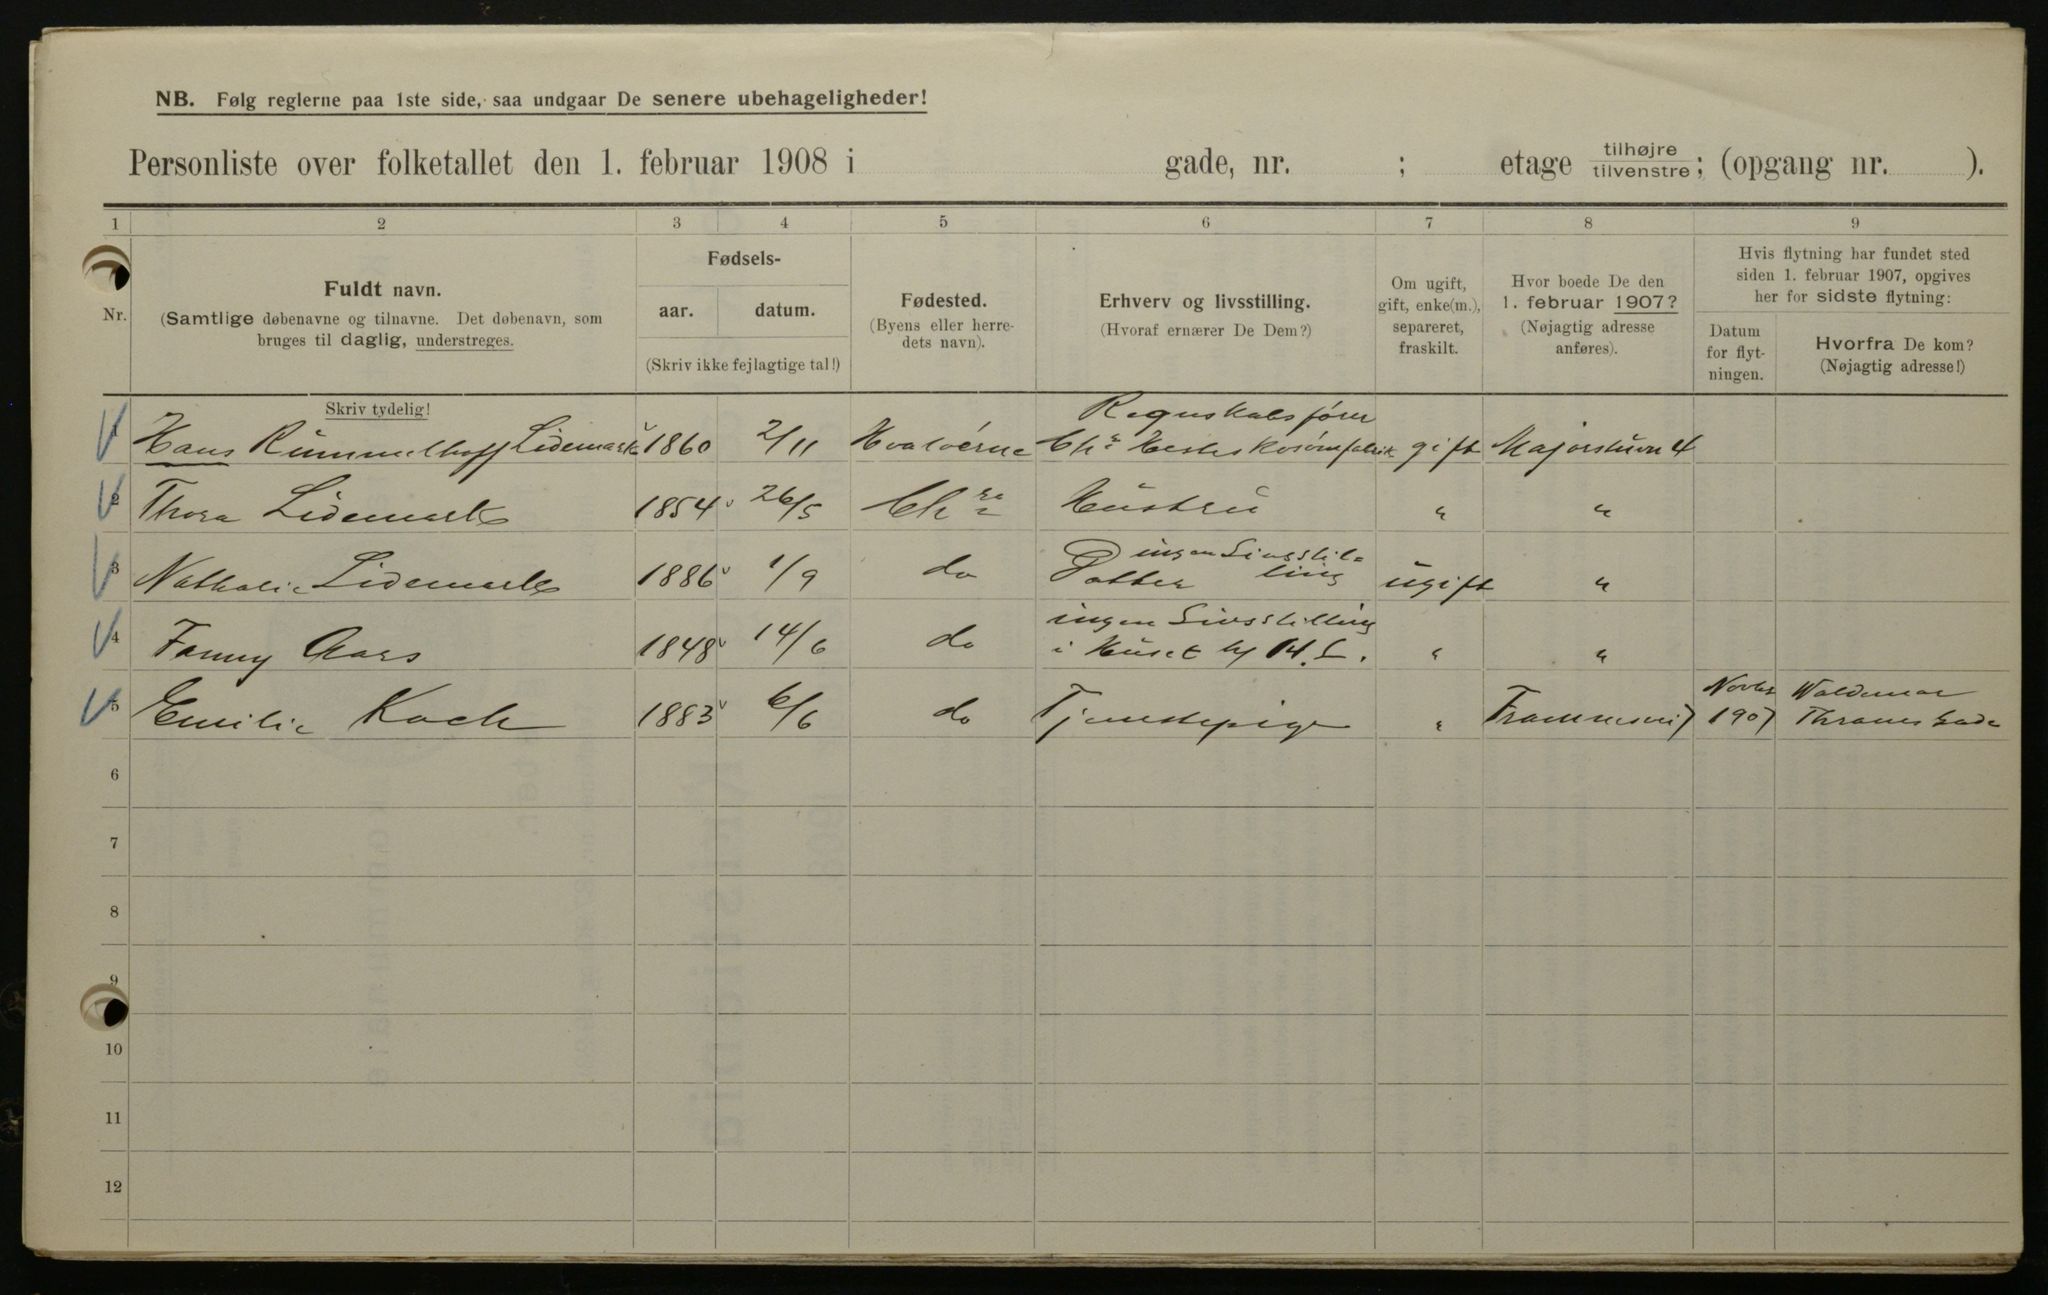 NB. Følg reglerne paa 1ste side, saa undgaar De senere ubehageligheder!
Personliste over folketallet den 1. februar 1908 i gade, nr. ; etage tilhøjre/tilvenstre; (opgang nr. ).
1 2 3 4 5 6 7 8 9
Nr.
Fuldt navn.
(Samtlige døbenavne og tilnavne. Det døbenavn, som
bruges til daglig, understreges.
Skriv tydelig!
Fødsels-
aar. datum.
(Skriv ikke fejlagtige tal!)
Fødested.
(Byens eller herre-
dets navn).
Erhverv og livsstilling.
(Hvoraf ernærer De Dem?)
Om ugift,
gift, enke(m.),
separeret,
fraskilt.
Hvor boede De den
1. februar 1907?
(Nøjagtig adresse
anføres).
Hvis flytning har fundet sted
siden 1. februar 1907, opgives
her for sidste flytning:
Datum
for flyt-
ningen.
Hvorfra De kom?
(Nøjagtig adresse!)
Regnskabsfører
1 Hans Rummelhoff Lidemark 1860 2/11 Chr Hesteskosømfabrik gift Majorstuvn 4
2 Thora Lidemark 1854 26/5 Chra Hustru " "
ingen Livsstil-
3 Nathalie Lidemark 1886 1/9 do Datter ling ugift "
ingen Livsstilling
4 Fanny Aars 1848 14/6 do i Huset hj H. L. " "
Novbr Waldemar
5 Emilie Koch 1883 6/6 do Tjenestepige " 1907 Thranes Gade
6
7
8
9
10
11
12